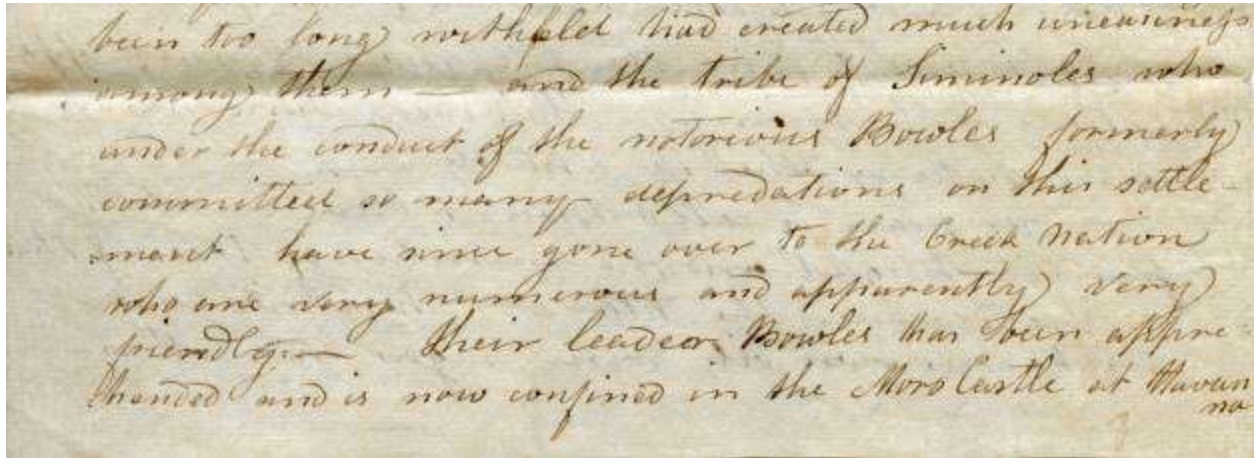 been too long withheld had created much uneasiness
among them — and the tribe of Siminoles who
under the conduct of the notorious Bowles formerly
committed so many depredations on this settle-
ment have since gone over to the Creek Nation
who are very numerous and apparently very
friendly. — Their leader Bowles has been appre-
hended and is now confined in the Moro Castle at Havan
na